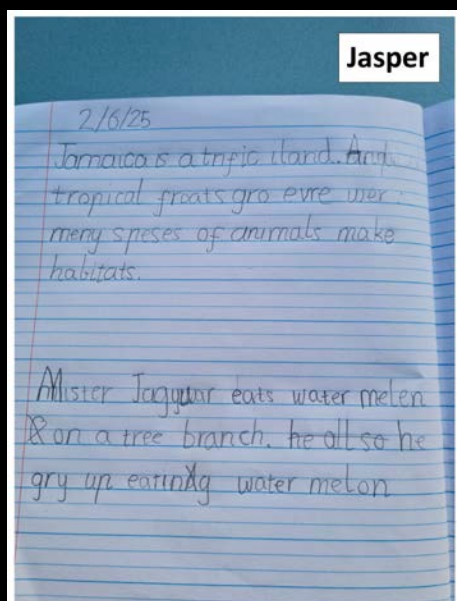 Jasper
2/6/25
Jamaica is a trific iland. And
tropical froats gro evre wer
meny speses of animals make
habitats.
Mister Jagyuar eats water melen
on a tree branch. he all so he
gry up eating water melon